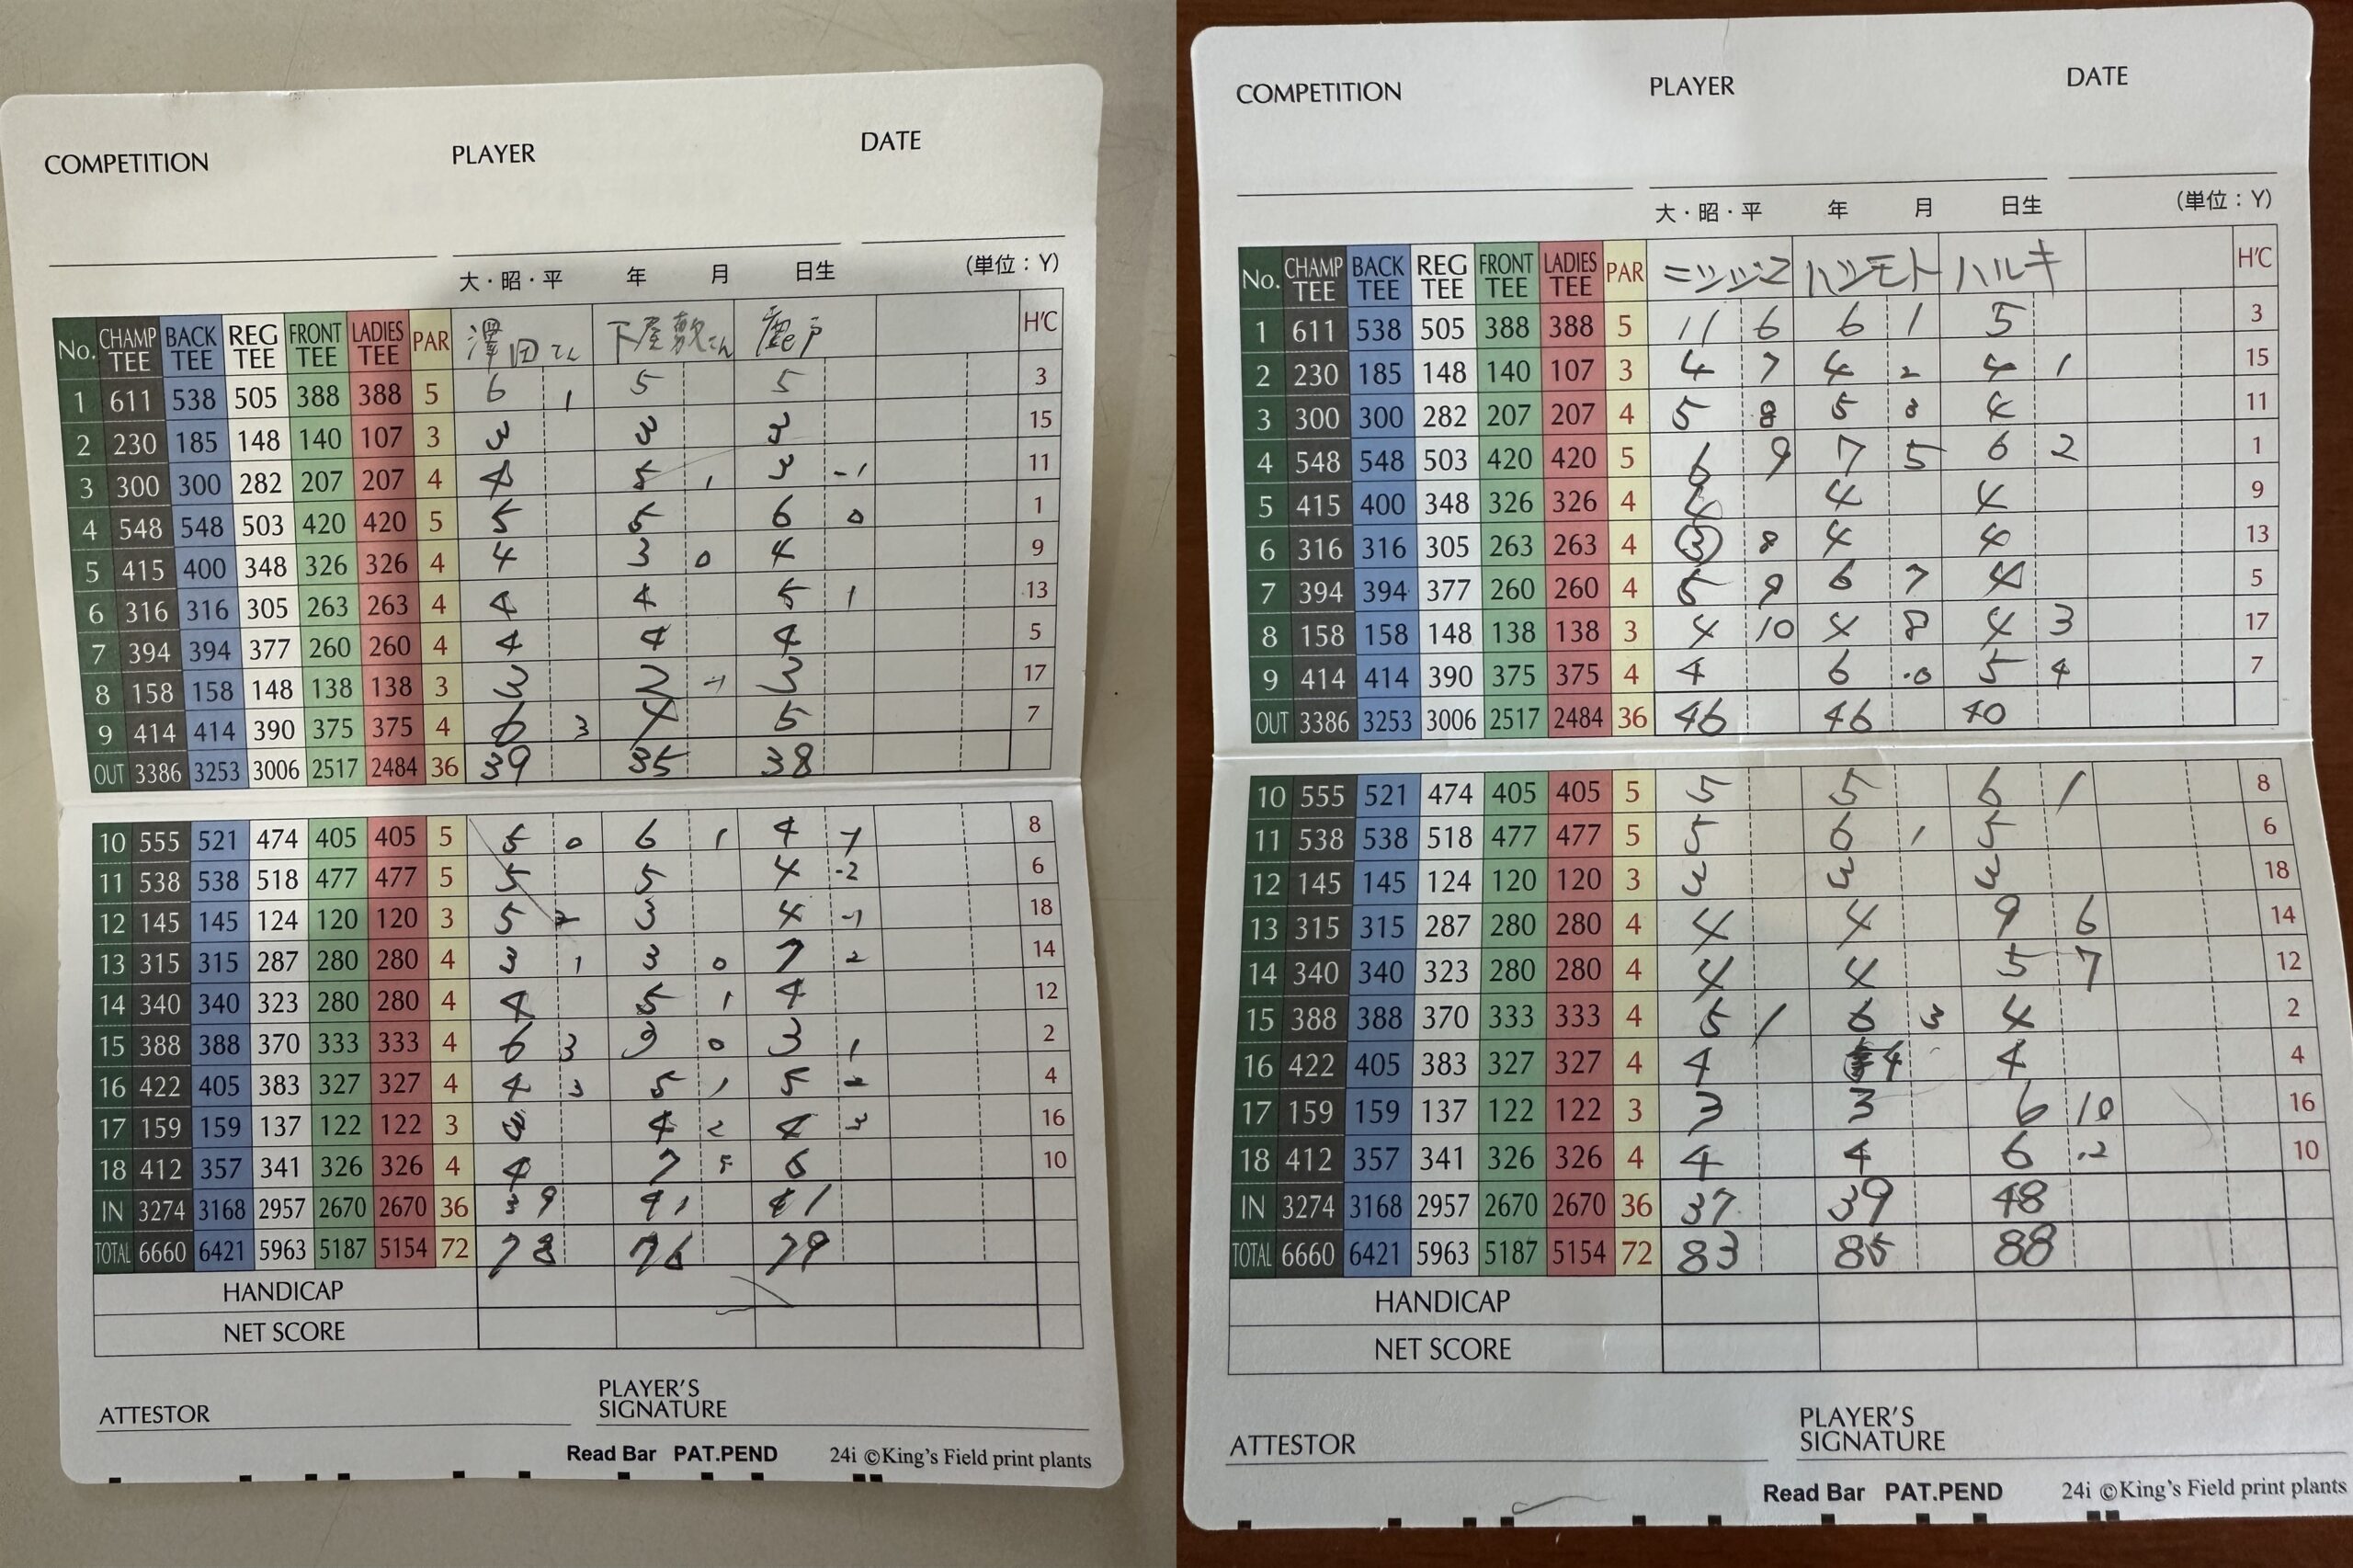 COMPETITION PLAYER DATE
大・昭・平 年 月 日生 (単位：Y)
No. CHAMP TEE BACK TEE REG TEE FRONT TEE LADIES TEE PAR 澤田さん 下屋敷さん 鹿戸 H'C
1 611 538 505 388 388 5 6 1 5 5 3
2 230 185 148 140 107 3 3 3 3 15
3 300 300 282 207 207 4 4 5 1 3 -1 11
4 548 548 503 420 420 5 5 5 6 0 1
5 415 400 348 326 326 4 4 3 0 4 9
6 316 316 305 263 263 4 4 4 5 1 13
7 394 394 377 260 260 4 4 4 4 5
8 158 158 148 138 138 3 3 2 -1 3 17
9 414 414 390 375 375 4 6 3 4 5 7
OUT 3386 3253 3006 2517 2484 36 39 35 38
10 555 521 474 405 405 5 5 0 6 1 4 8
11 538 538 518 477 477 5 5 5 4 -2 6
12 145 145 124 120 120 3 5 2 3 4 -1 18
13 315 315 287 280 280 4 3 1 3 0 7 2 14
14 340 340 323 280 280 4 4 5 1 4 12
15 388 388 370 333 333 4 6 3 3 0 3 1 2
16 422 405 383 327 327 4 4 3 5 1 5 2 4
17 159 159 137 122 122 3 3 4 2 4 3 16
18 412 357 341 326 326 4 4 7 5 6 10
IN 3274 3168 2957 2670 2670 36 39 41 41
TOTAL 6660 6421 5963 5187 5154 72 78 76 79
HANDICAP
NET SCORE
ATTESTOR PLAYER'S SIGNATURE
Read Bar PAT.PEND 24i ©King's Field print plants
COMPETITION PLAYER DATE
大・昭・平 年 月 日生 (単位：Y)
No. CHAMP TEE BACK TEE REG TEE FRONT TEE LADIES TEE PAR ハツモト ハルキ H'C
1 611 538 505 388 388 5 11 6 6 1 5 3
2 230 185 148 140 107 3 4 7 4 2 4 1 15
3 300 300 282 207 207 4 5 8 5 3 4 11
4 548 548 503 420 420 5 6 9 7 5 6 2 1
5 415 400 348 326 326 4 4 4 4 9
6 316 316 305 263 263 4 3 8 4 4 13
7 394 394 377 260 260 4 5 9 6 7 4 5
8 158 158 148 138 138 3 4 10 4 8 4 3 17
9 414 414 390 375 375 4 4 6 .0 5 4 7
OUT 3386 3253 3006 2517 2484 36 46 46 40
10 555 521 474 405 405 5 5 5 6 1 8
11 538 538 518 477 477 5 5 6 1 5 6
12 145 145 124 120 120 3 3 3 3 18
13 315 315 287 280 280 4 4 4 9 6 14
14 340 340 323 280 280 4 4 4 5 7 12
15 388 388 370 333 333 4 5 1 6 3 4 2
16 422 405 383 327 327 4 4 4 4 4
17 159 159 137 122 122 3 3 3 6 10 16
18 412 357 341 326 326 4 4 4 6 .2 10
IN 3274 3168 2957 2670 2670 36 37 39 48
TOTAL 6660 6421 5963 5187 5154 72 83 85 88
HANDICAP
NET SCORE
ATTESTOR PLAYER'S SIGNATURE
Read Bar PAT.PEND 24i ©King's Field print plants